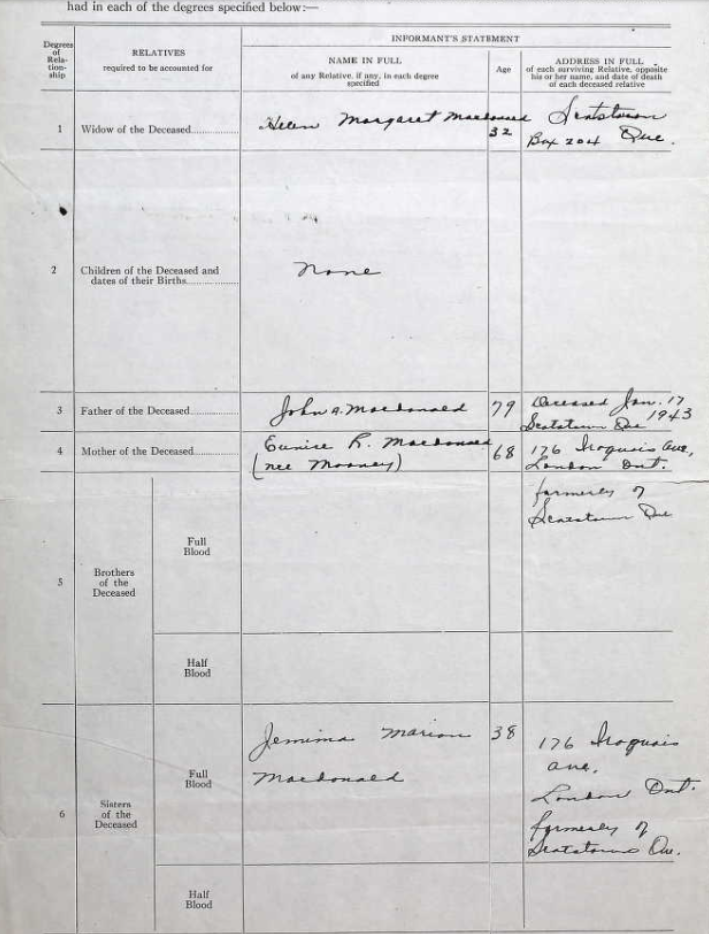 had in each of the degrees specified below:—
Degrees of Rela- tion- ship
RELATIVES
required to be accounted for
INFORMANT'S STATEMENT
NAME IN FULL
of any Relative, if any, in each degree
specified
Age
ADDRESS IN FULL
of each surviving Relative, opposite
his or her name, and date of death
of each deceased relative
1 Widow of the Deceased Helen Margaret Macdonald 32 Scotstown
Box 204 Que.
2 Children of the Deceased and
dates of their Births None
3 Father of the Deceased John A. Macdonald 79 Deceased Jan. 17
1943
Scotstown Que
4 Mother of the Deceased Eunice R. Macdonald 68 176 Iroquois Ave,
(nee Mooney) London Ont.
formerly of
Scotstown Que
5
Brothers
of the
Deceased
Full
Blood
Half
Blood
6
Sisters
of the
Deceased
Full
Blood
Jemima Marion 38
Macdonald
176 Iroquois
Ave,
London Ont.
formerly of
Scotstown Que.
Half
Blood